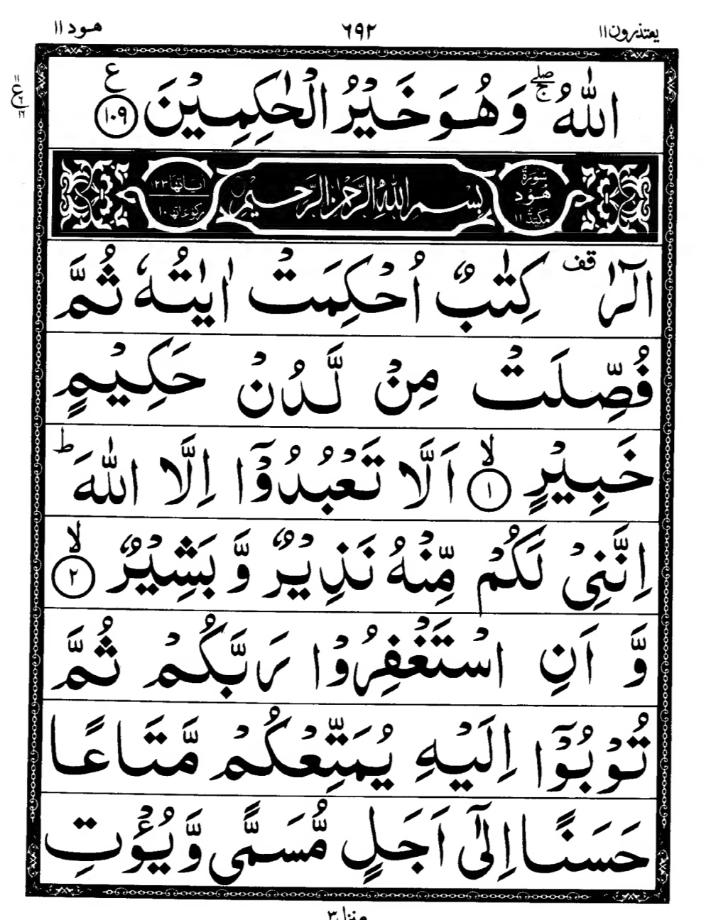 یعتذرون۱۱ ۶۹۲ ھود۱۱
اللّٰهُ ۚۖ وَهُوَ خَيْرُ الْحٰكِمِيْنَ ﴿۱۰۹﴾ ع
سُوْرَةُ هُوْد مَكِّيَّةٌ ۱۱ بِسْمِ اللّٰهِ الرَّحْمٰنِ الرَّحِيْمِ اٰیاتها ۱۲۳ رکوعاتها ۱۰
الٓرٰ ۫ كِتٰبٌ اُحْكِمَتْ اٰيٰتُهٗ ثُمَّ
فُصِّلَتْ مِنْ لَّدُنْ حَكِيْمٍ
خَبِيْرٍ ۙ﴿۱﴾ اَلَّا تَعْبُدُوْۤا اِلَّا اللّٰهَ ؕ
اِنَّنِيْ لَكُمْ مِّنْهُ نَذِيْرٌ وَّ بَشِيْرٌ ۙ﴿۲﴾
وَّ اَنِ اسْتَغْفِرُوْا رَبَّكُمْ ثُمَّ
تُوْبُوْۤا اِلَيْهِ يُمَتِّعْكُمْ مَّتَاعًا
حَسَنًا اِلٰۤى اَجَلٍ مُّسَمًّى وَّيُؤْتِ
منزل۳